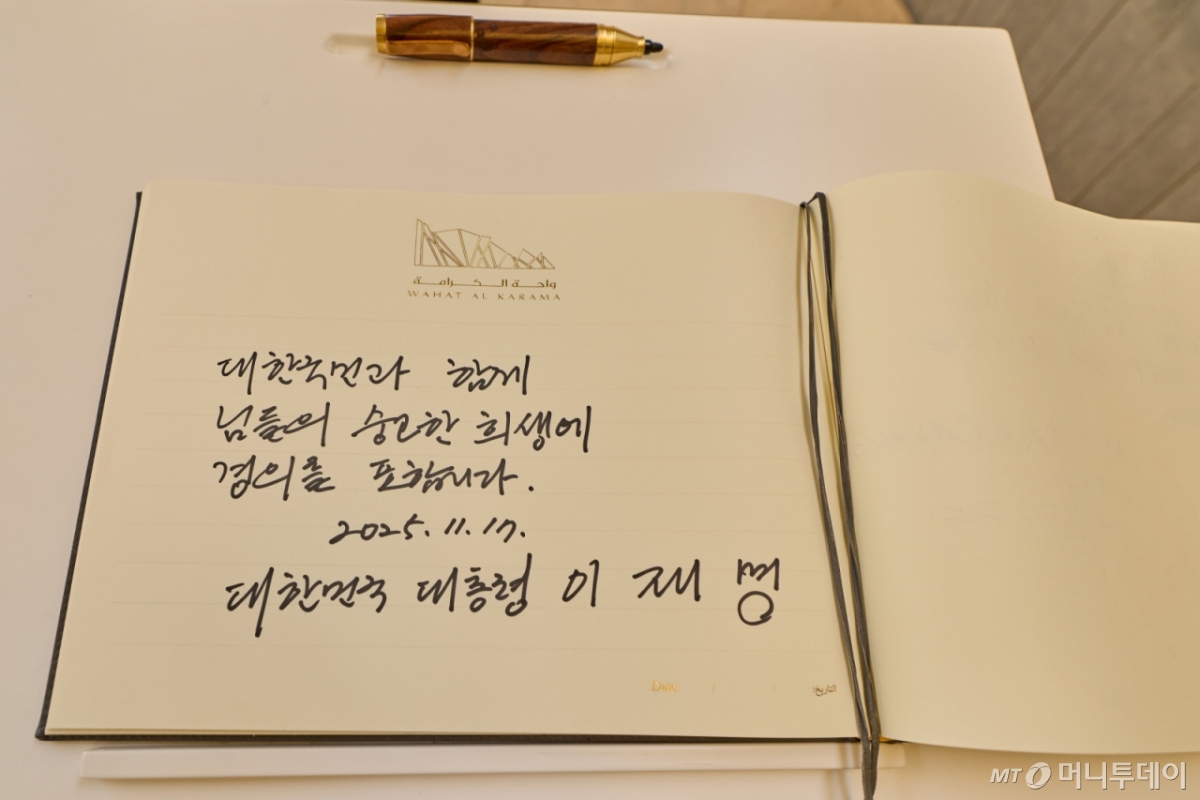 واحة الكرامة
WAHAT AL KARAMA
대한국민과 함께
님들의 숭고한 희생에
경의를 표합니다.
2025. 11. 17.
대한민국 대통령 이 재 명
Date / / التاريخ:
MT 머니투데이